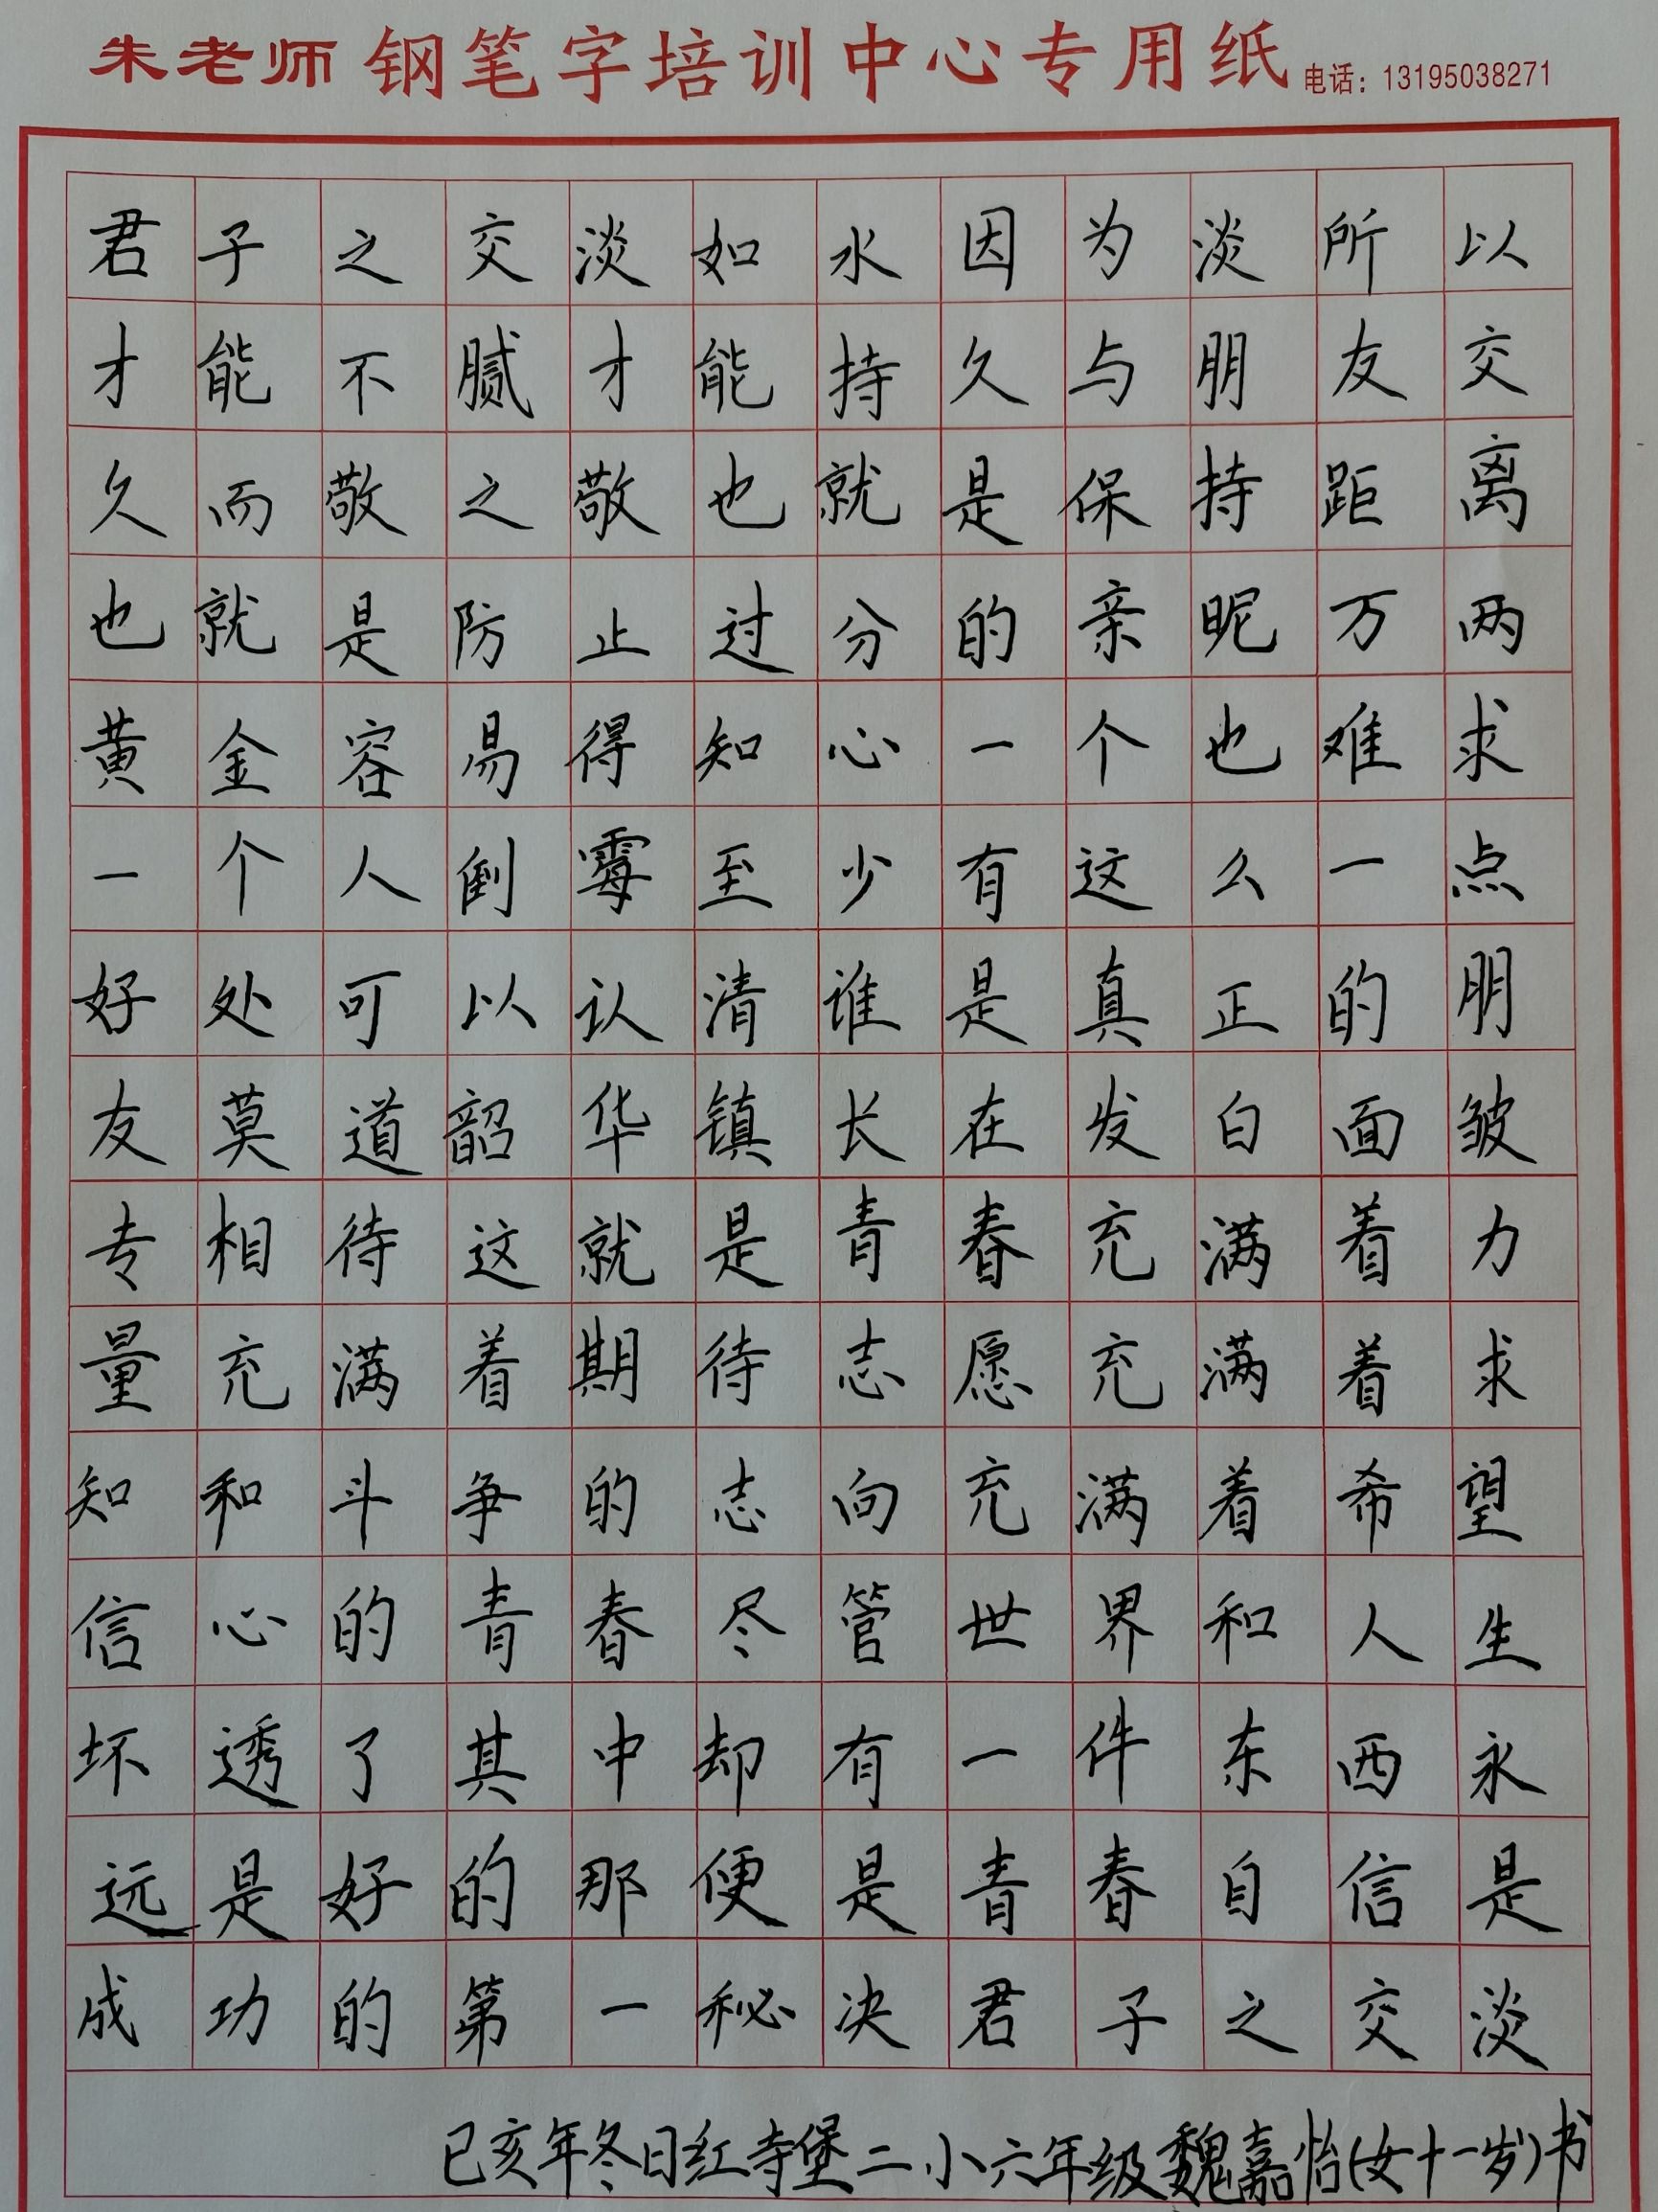 朱老师 钢笔字培训中心专用纸 电话：13195038271
君子之交淡如水因为淡所以
才能不腻才能持久与朋友交
久而敬之敬也就是保持距离
也就是防止过分的亲昵万两
黄金容易得知心一个也难求
一个人倒霉至少有这么一点
好处可以认清谁是真正的朋
友莫道韶华镇长在发白面皱
专相待这就是青春充满着力
量充满着期待志愿充满着求
知和斗争的志向充满着希望
信心的青春尽管世界和人生
坏透了其中却有一件东西永
远是好的那便是青春自信是
成功的第一秘决君子之交淡
已亥年冬日红寺堡二小六年级魏嘉怡(女十一岁)书